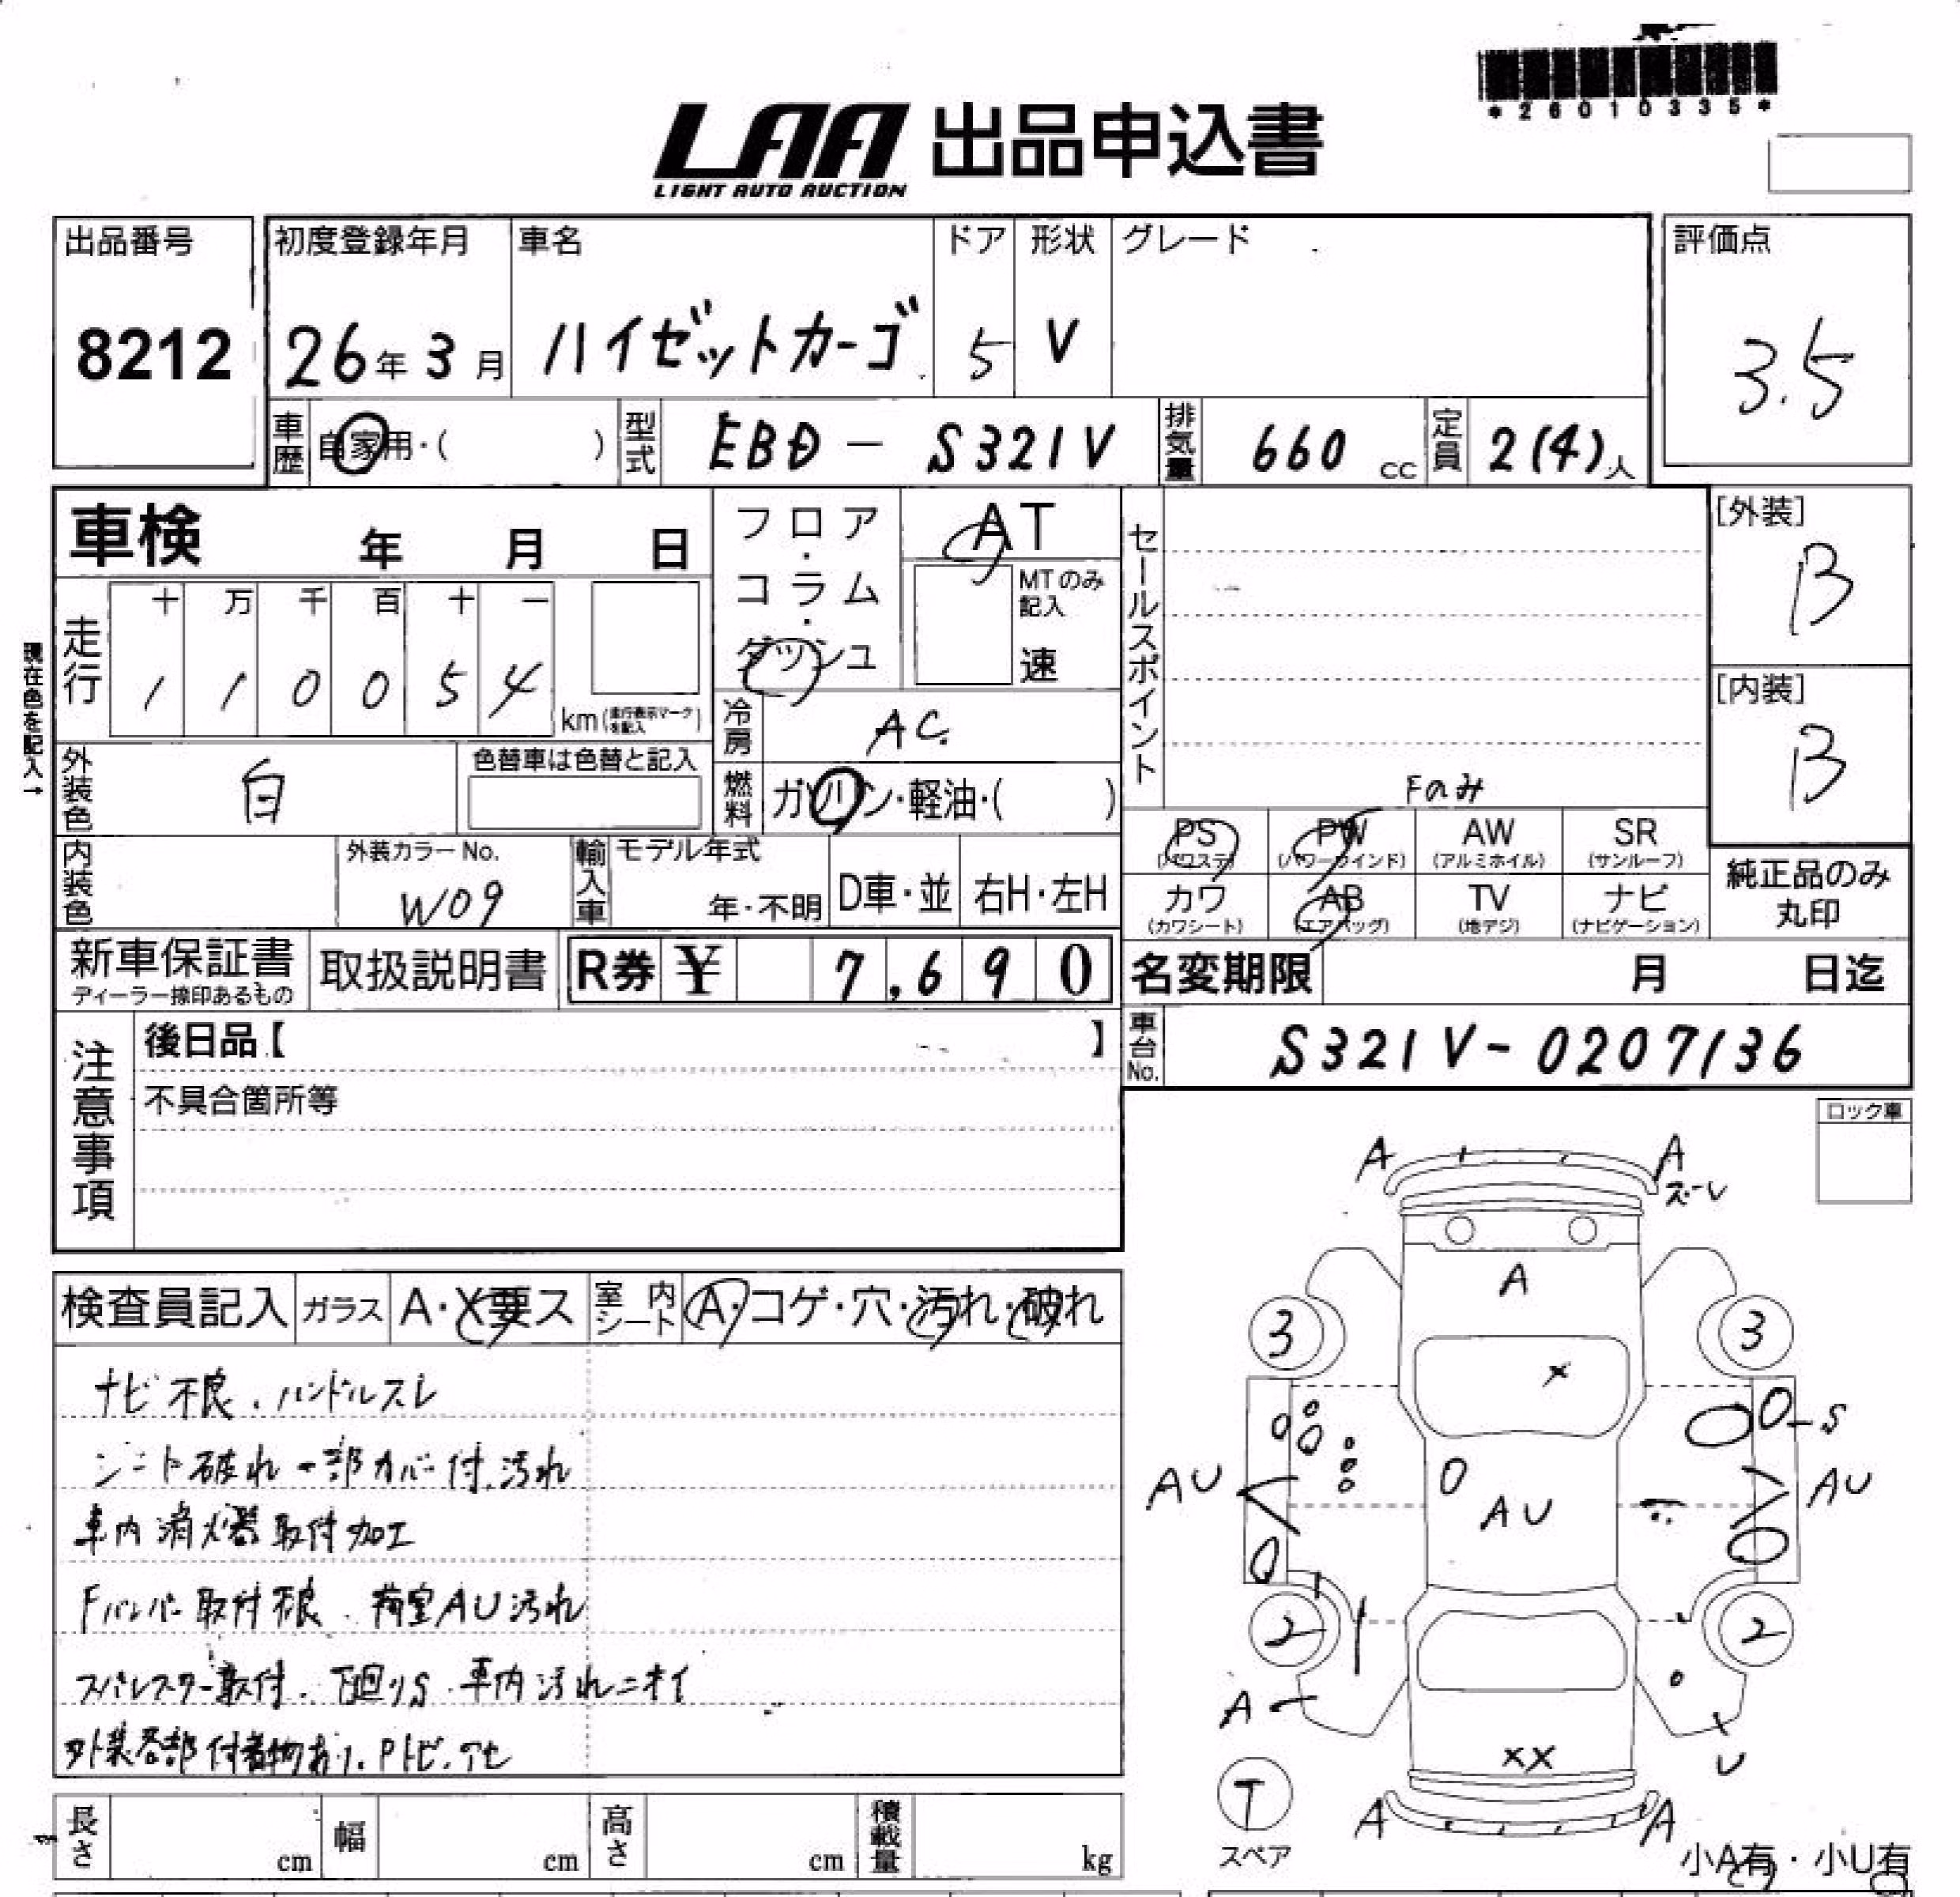 *26010335*
LAA 出品申込書
LIGHT AUTO AUCTION
出品番号 初度登録年月 車名 ドア 形状 グレード 評価点
8212 26年3月 ハイゼットカーゴ 5 V 3.5
車歴 自家用・( ) 型式 EBD - S321V 排気量 660 cc 定員 2(4)人
車検 年 月 日 フロア・コラム・ダッシュ AT セールスポイント [外装]
B
十 万 千 百 十 一 MTのみ記入
走行 1 1 0 0 5 4 km(走行表示マークを記入) 速 [内装]
現在色を記入→
冷房 AC B
外装色 白 色替車は色替と記入 燃料 ガソリン・軽油・( ) Fのみ
PS PW AW SR
(パワステ) (パワーウインド) (アルミホイル) (サンルーフ)
内装色 外装カラーNo. W09 輸入車 モデル年式 年・不明 D車・並 右H・左H 純正品のみ丸印
カワ AB TV ナビ
(カワシート) (エアバッグ) (地デジ) (ナビゲーション)
新車保証書 取扱説明書 R券 ¥ 7,690 名変期限 月 日迄
ディーラー捺印あるもの
注意事項 後日品【 】 車台No. S321V-0207136
不具合箇所等
ロック車
A A
ズーレ
検査員記入 ガラス A・X要ス 室内シート A・コゲ・穴・汚れ・破れ
A
3 3
ナビ不良.ハンドルスレ
X
S
シート破れ一部カバー付.汚れ
AU AU AU
車内消火器取付加工
Fバンパー取付不良.荷室AU汚れ
2 2
取付.下回りS.車内汚れニオイ
A
外装各部付着物あり.Pトビ.アセ
XX U
T
スペア
A A
長さ cm 幅 cm 高さ cm 積載量 kg
小A有・小U有